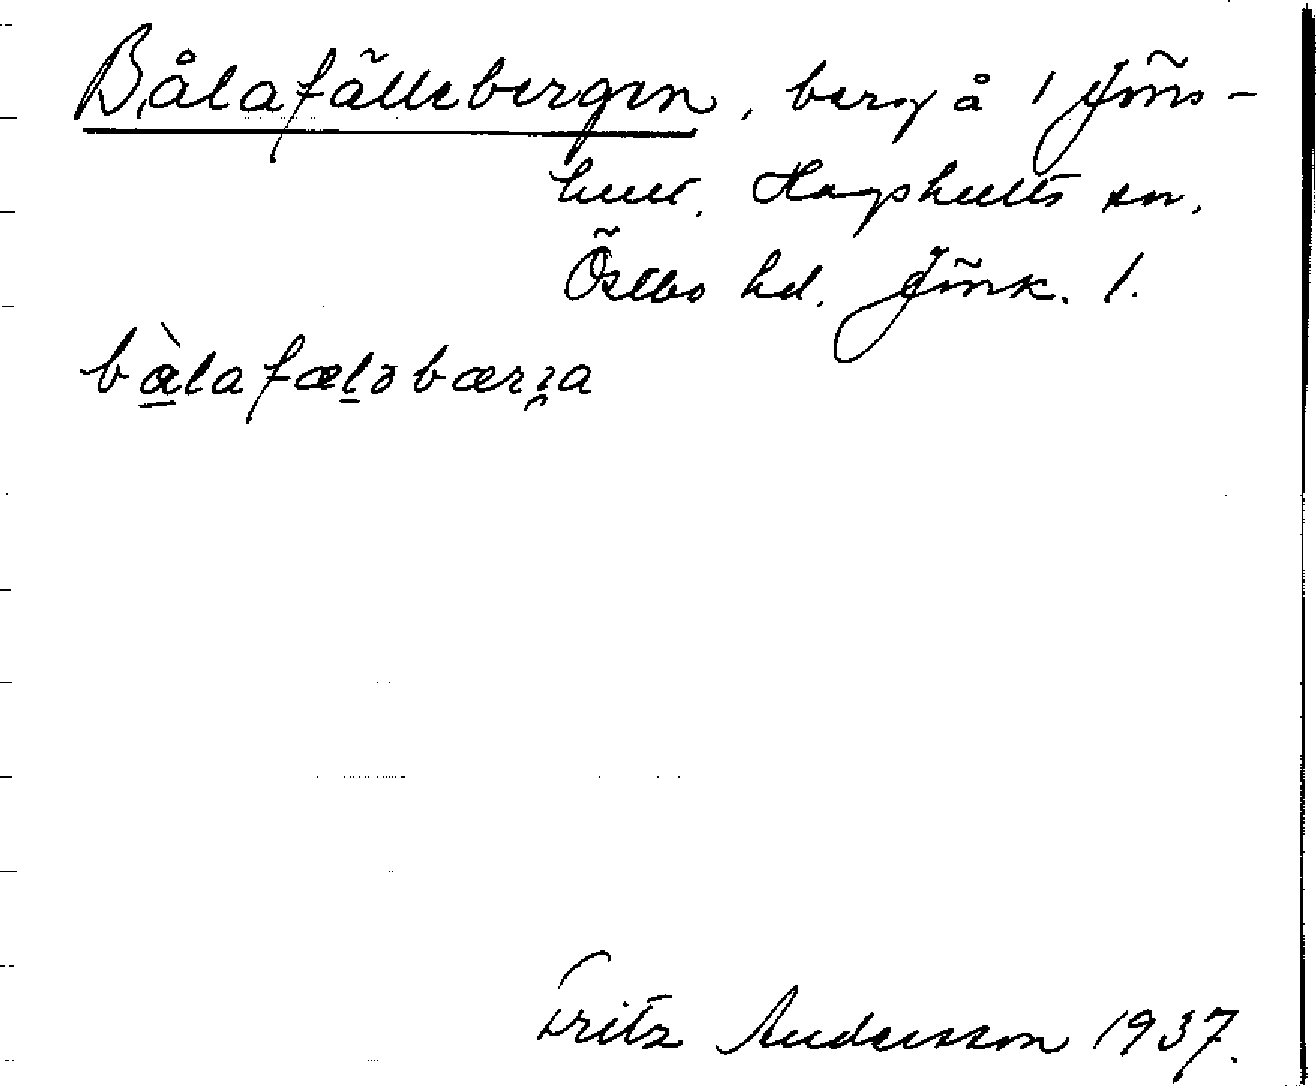 Bålafällebergen, berg å 1 Jöns-
hult. Hagshults sn.
Östbo hd. Jönk. l.
bàlafæləbærʒa
Fritz Andersson 1937.